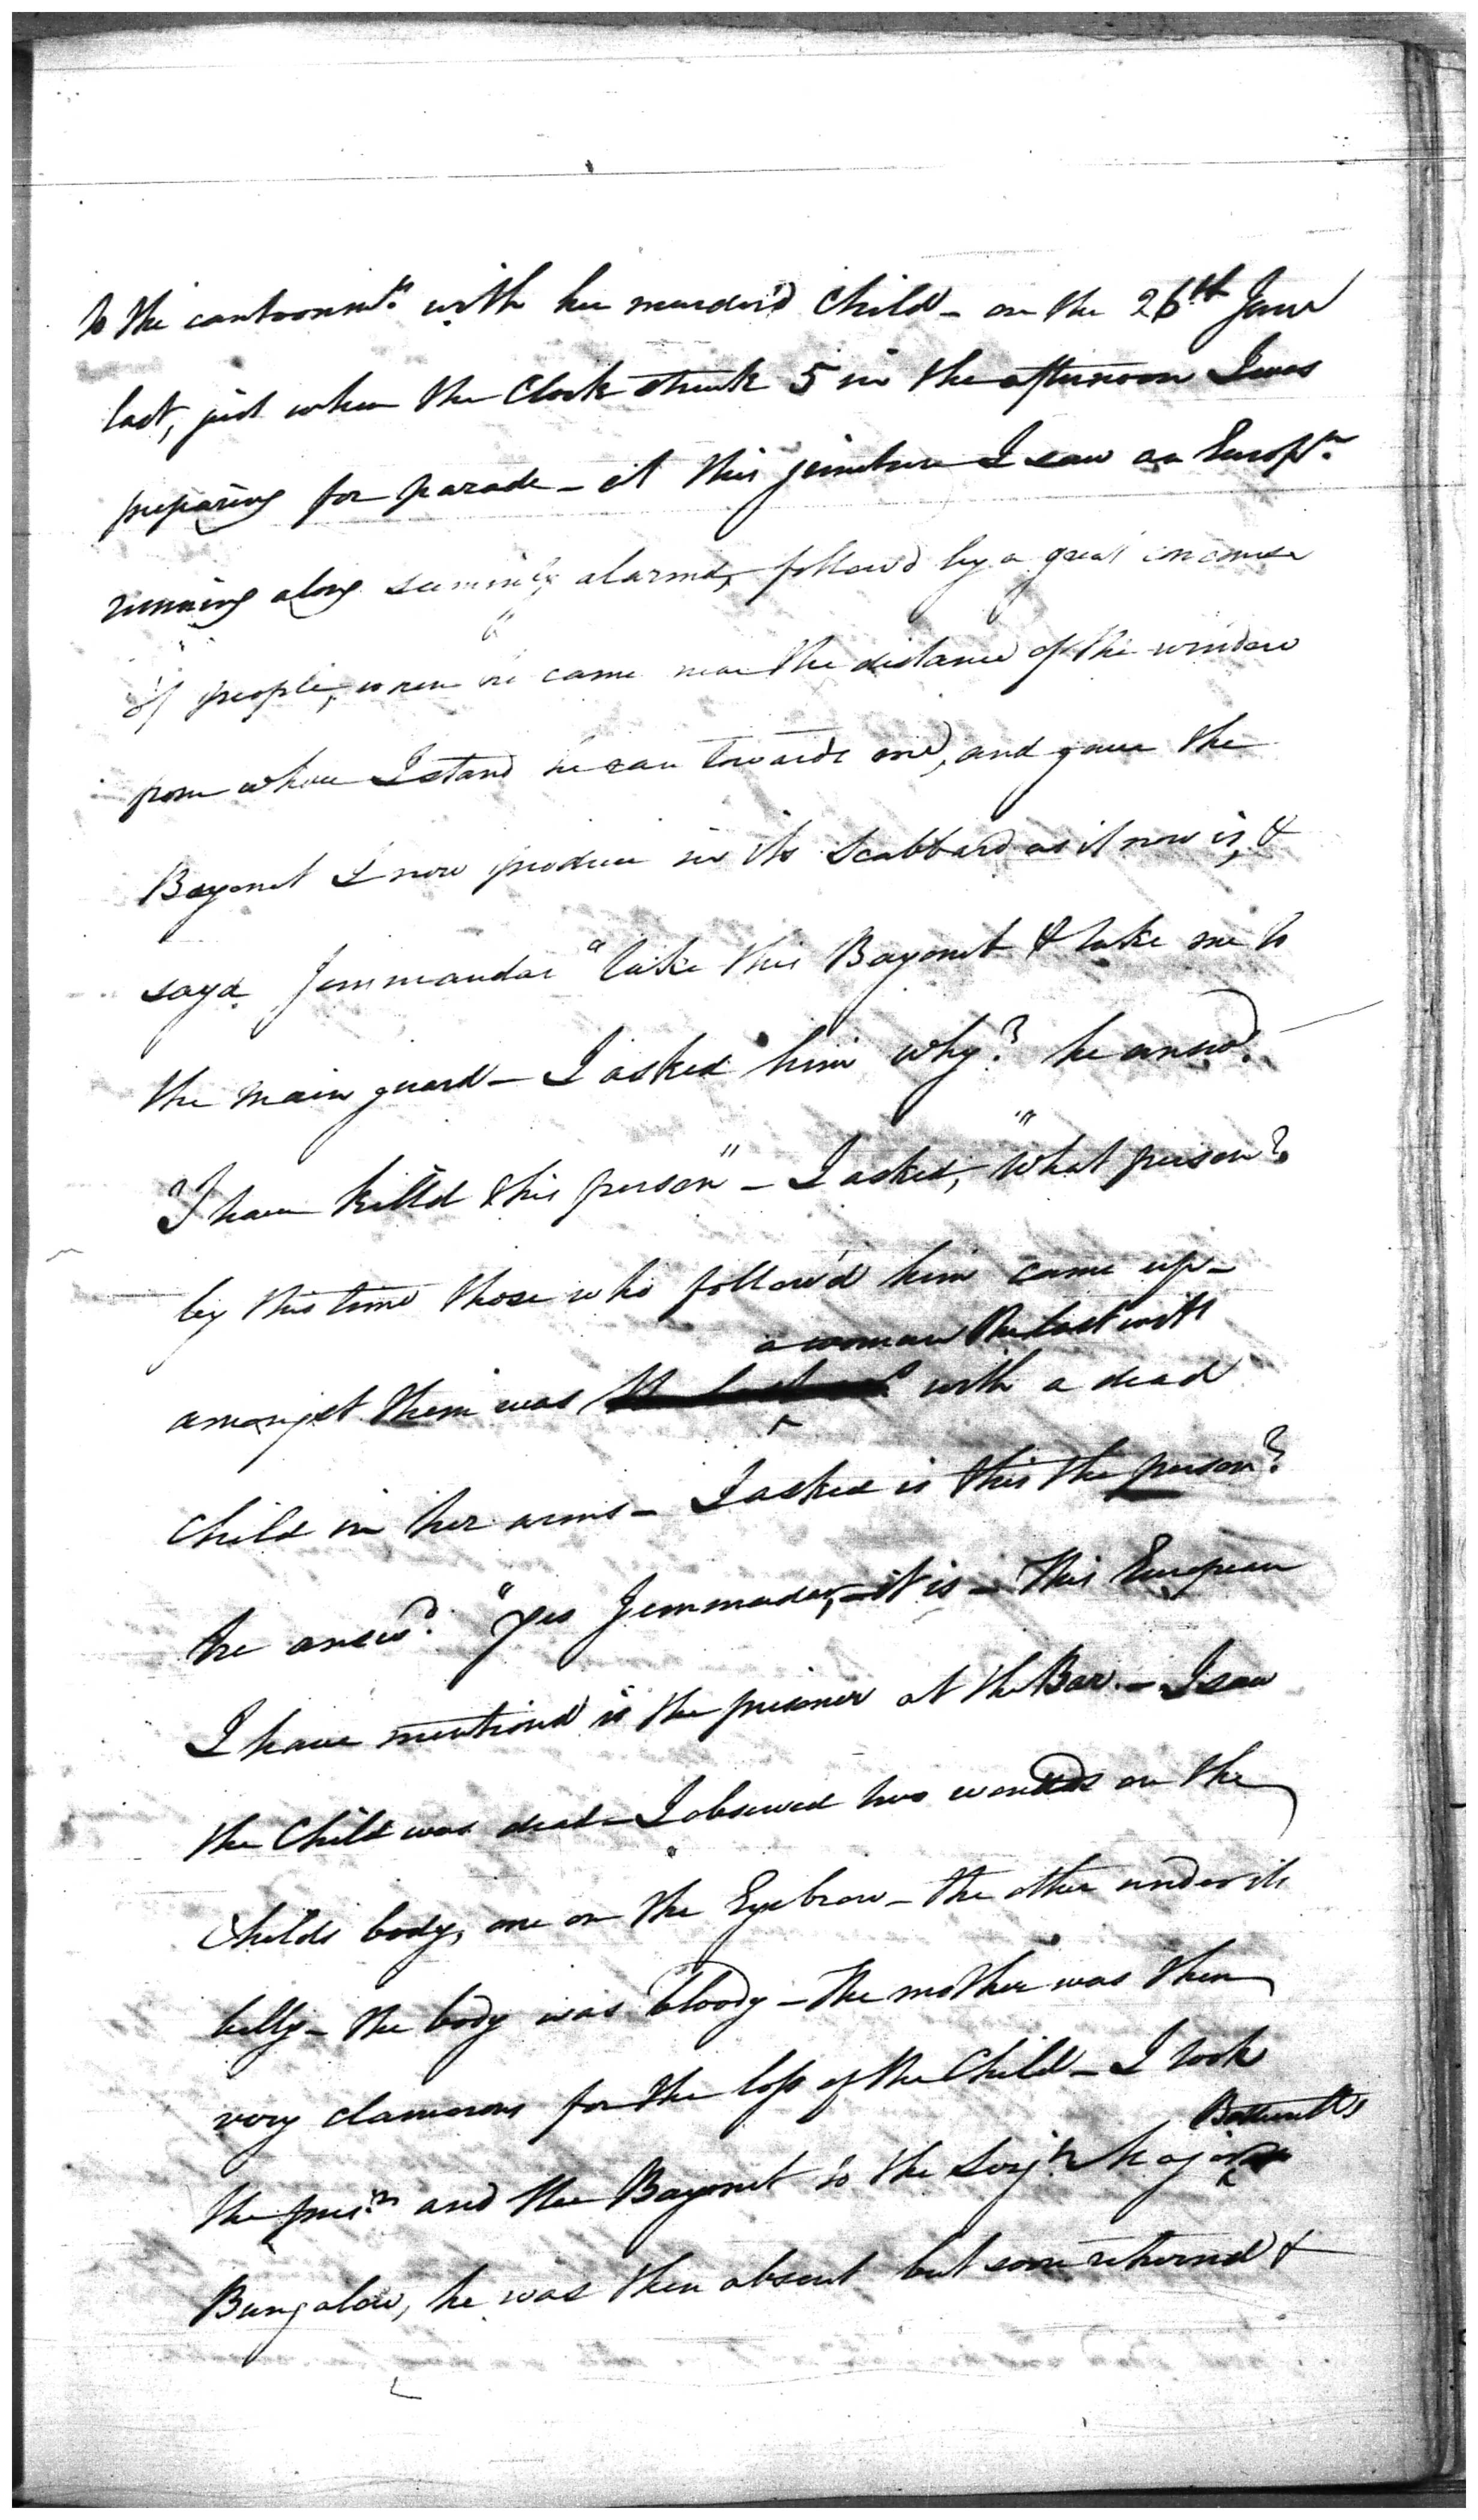 to the cantoonmts. with her murder'd Child - on the 26th Jany
last, just when the Clock struck 5 in the afternoon I was
preparing for parade - at this juncture I saw an Europn.
running along seemingly alarmed, follow'd by a great concourse
of people, when he came near the distance of the window
from where I stand he ran towards me, and gave the
Bayonet I now produce in its Scabbard as it now is, &
says Jemmandar "take this Bayonet & take me to
the main guard - I asked him why? he answd.
"I have killed this person" - I asked, "What person?
by this time those who follow'd him came up -
a woman the last with
amongst them was with a dead
Child in her arms - I asked is this the person?
he answd. "Yes Jemmadar, it is - This European
I have mentiond is the prisoner at the Bar. - I saw
the Child was dead - I observed two wounds on the
Childs body, one on the Eyebrow - the other under its
belly - the body was bloody - the mother was then
very clamorous for the loss of the Child - I took
the prisr. and the Bayonet to the Serjt. Major
Bungalow, he was then absent but soon returned &